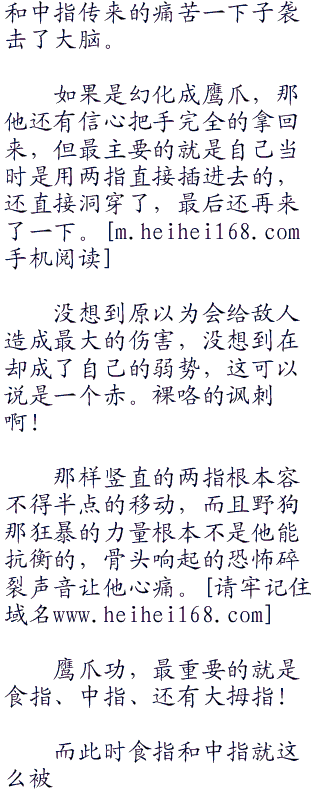 和中指传来的痛苦一下子袭
击了大脑。
如果是幻化成鹰爪，那
他还有信心把手完全的拿回
来，但最主要的就是自己当
时是用两指直接插进去的，
还直接洞穿了，最后还再来
了一下。[m.heihei168.com
手机阅读]
没想到原以为会给敌人
造成最大的伤害，没想到在
却成了自己的弱势，这可以
说是一个赤。裸咯的讽刺
啊！
那样竖直的两指根本容
不得半点的移动，而且野狗
那狂暴的力量根本不是他能
抗衡的，骨头响起的恐怖碎
裂声音让他心痛。[请牢记住
域名www.heihei168.com]
鹰爪功，最重要的就是
食指、中指、还有大拇指！
而此时食指和中指就这
么被